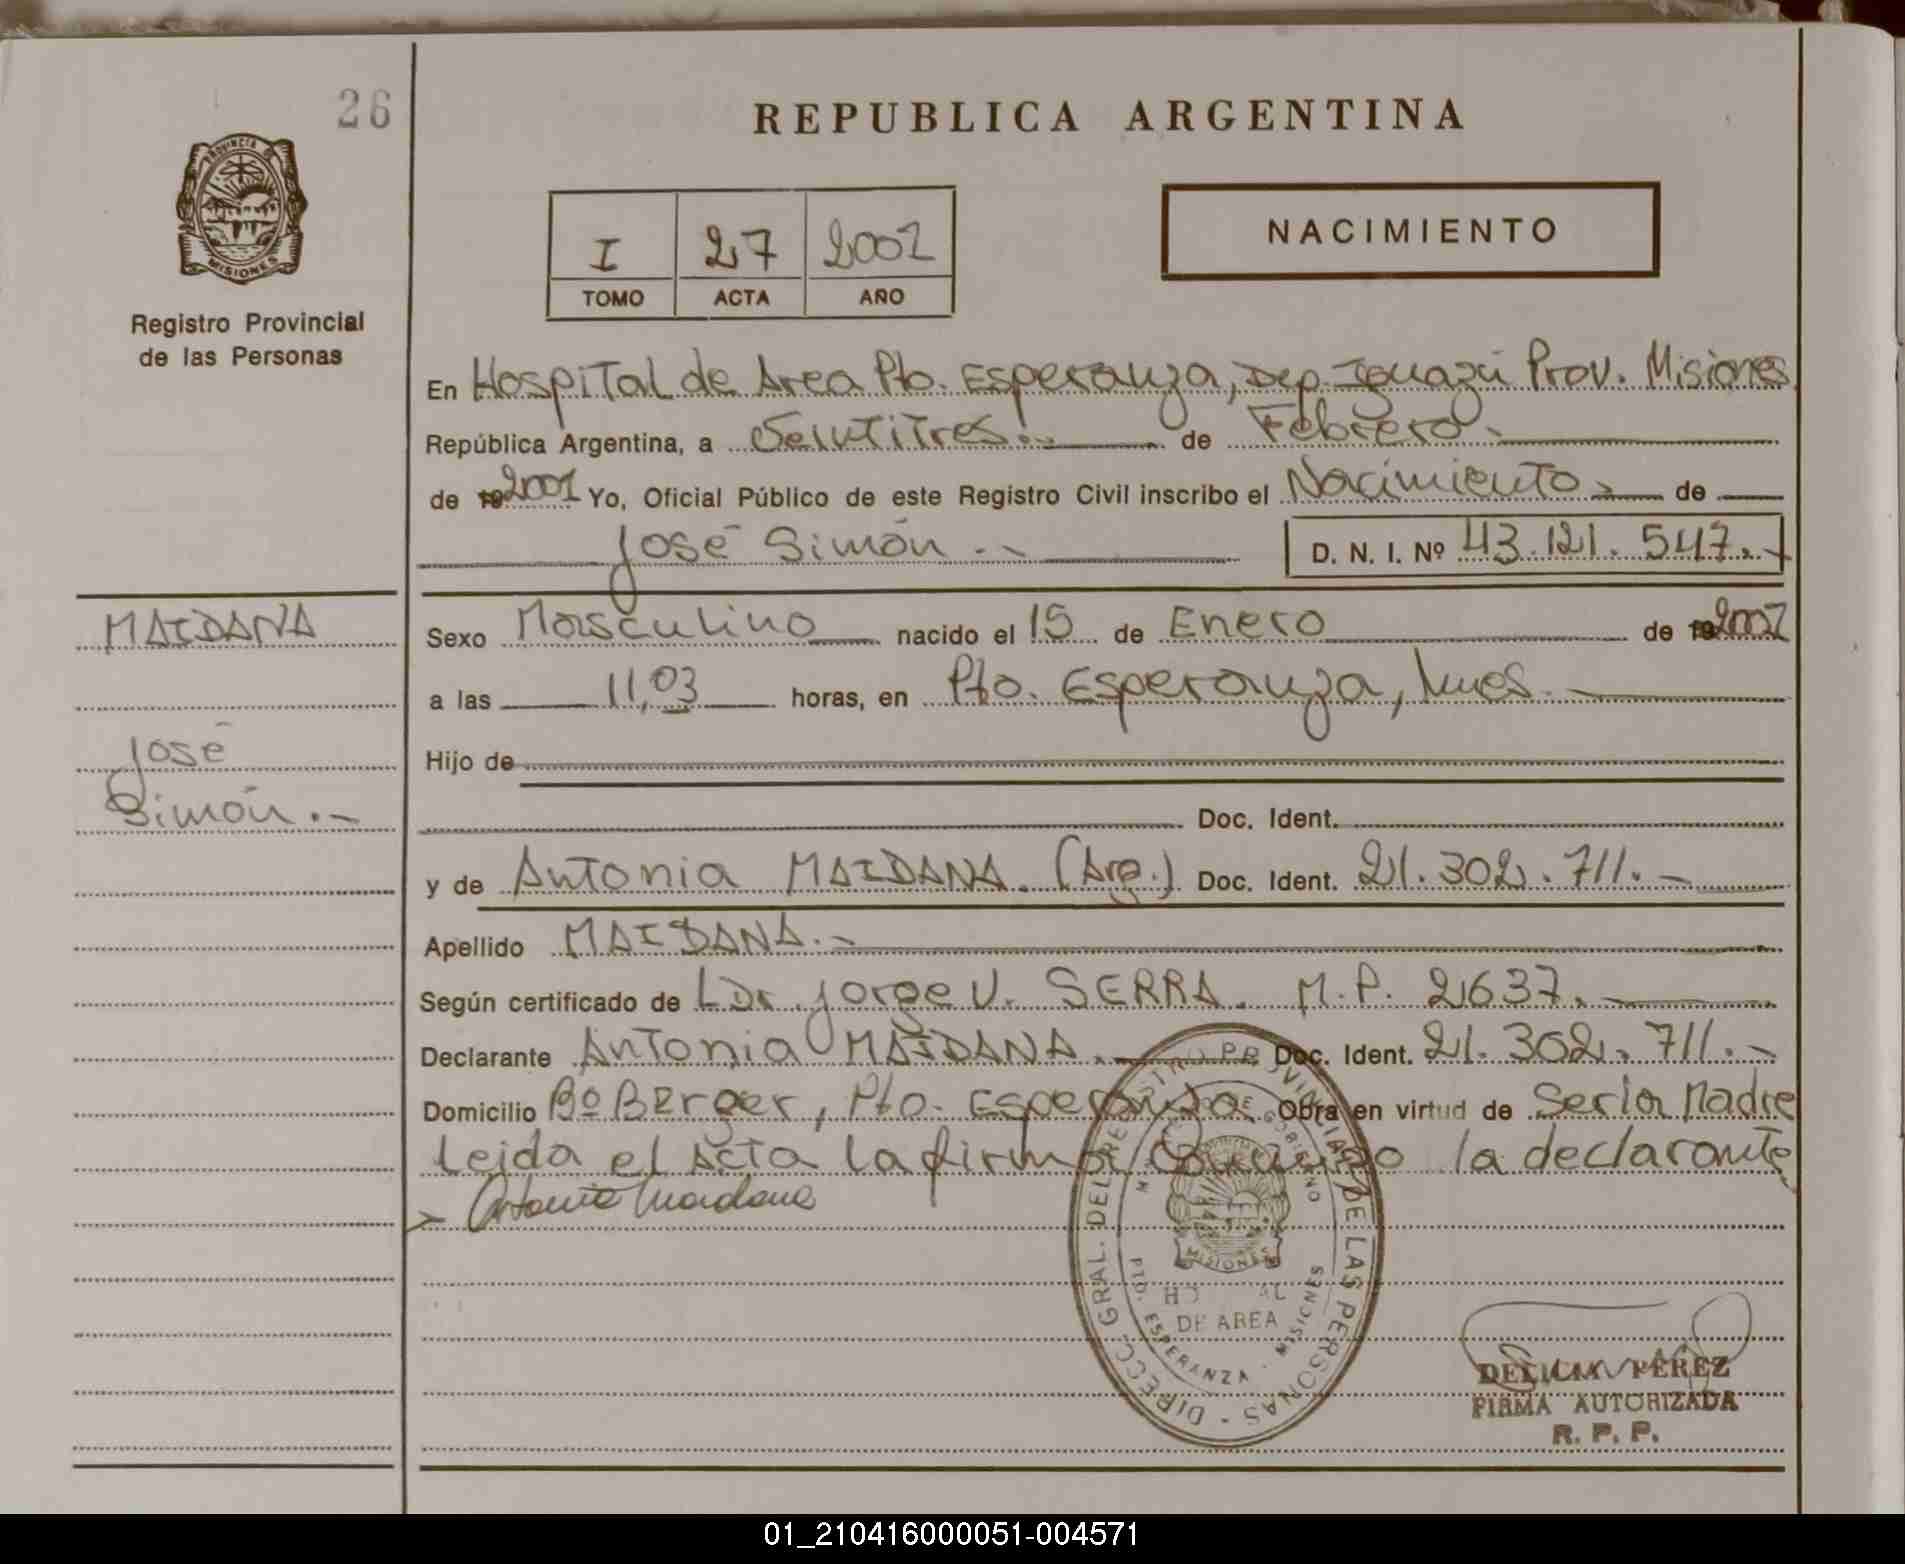 26
REPUBLICA ARGENTINA
PROVINCIA DE
MISIONES
Registro Provincial
de las Personas
I 27 2001
TOMO ACTA AÑO
NACIMIENTO
En Hospital de Area Pto. Esperanza, Dep. Iguazú Prov. Misiones
República Argentina, a Veintitres.- de Febrero.-
de 19 2001 Yo, Oficial Público de este Registro Civil inscribo el Nacimiento.- de
José Simón.- D. N. I. Nº 43.121.547.-
MAIDANA
José
Simón.-
Sexo Masculino nacido el 15 de Enero de 19 2001
a las 11,03 horas, en Pto. Esperanza, Mnes.-
Hijo de
Doc. Ident.
y de Antonia MAIDANA. (Arg.) Doc. Ident. 21.302.711.-
Apellido MAIDANA.-
Según certificado de Dr. Jorge V. SERRA. M.P. 2637.-
Declarante Antonia MAIDANA. Doc. Ident. 21.302.711.-
Domicilio Bº Berger, Pto. Esperanza. Obra en virtud de Ser la Madre
Leida el Acta la firma conmigo la declarante
Antonia Maidana
DIRECC. GRAL. DEL REGISTRO PROVINCIAL DE LAS PERSONAS
GOBIERNO
MISIONES
DE AREA
PTO. ESPERANZA - MISIONES
PEREZ
FIRMA AUTORIZADA
R. P. P.
01_210416000051-004571